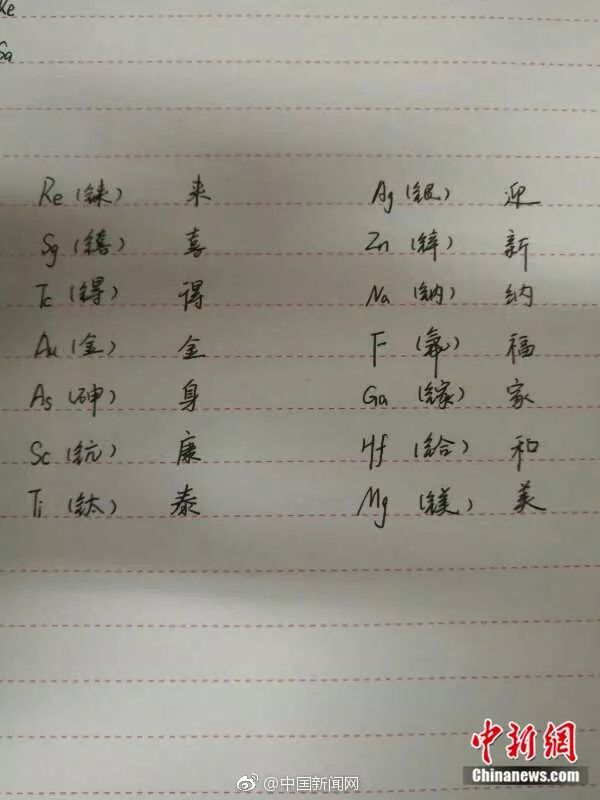 Re (铼) 来 Ag (银) 迎
Sg (𨭎) 喜 Zn (锌) 新
Tc (锝) 得 Na (钠) 纳
Au (金) 金 F (氟) 福
As (砷) 身 Ga (镓) 家
Sc (钪) 康 Hf (铪) 和
Ti (钛) 泰 Mg (镁) 美
中新网
Chinanews.com
@中国新闻网